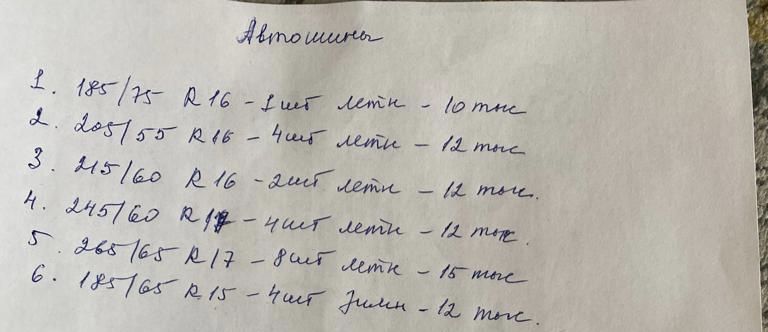 Автошины
1. 185/75 R 16 - 1 шт летн - 10 тыс
2. 205/55 R 16 - 4 шт летн - 12 тыс
3. 215/60 R 16 - 2 шт летн - 12 тыс.
4. 245/60 R 17 - 4 шт летн - 12 тыс.
5. 265/65 R 17 - 8 шт летн - 15 тыс
6. 185/65 R 15 - 4 шт зимн - 12 тыс.